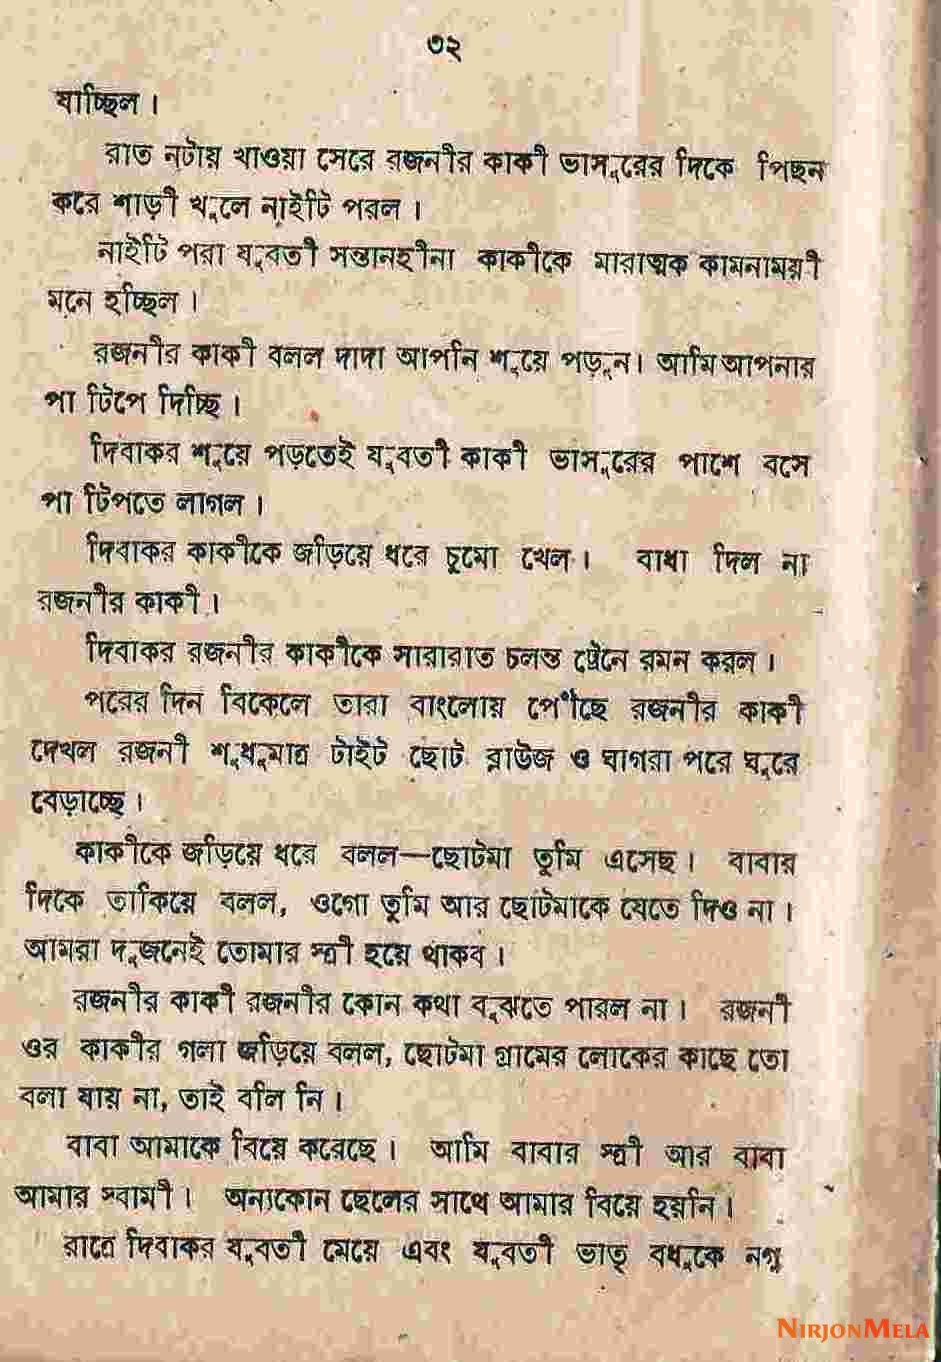 ৩২
যাচ্ছিল।
রাত নটায় খাওয়া সেরে রজনীর কাকী ভাসুরের দিকে পিছন
করে শাড়ী খুলে নাইটি পরল।
নাইটি পরা যুবতী সন্তানহীনা কাকীকে মারাত্মক কামনাময়ী
মনে হচ্ছিল।
রজনীর কাকী বলল দাদা আপনি শুয়ে পড়ুন। আমি আপনার
পা টিপে দিচ্ছি।
দিবাকর শুয়ে পড়তেই যুবতী কাকী ভাসুরের পাশে বসে
পা টিপতে লাগল।
দিবাকর কাকীকে জড়িয়ে ধরে চুমো খেল। বাধা দিল না
রজনীর কাকী।
দিবাকর রজনীর কাকীকে সারারাত চলন্ত ট্রেনে রমন করল।
পরের দিন বিকেলে তারা বাংলোয় পৌঁছে রজনীর কাকী
দেখল রজনী শুধুমাত্র টাইট ছোট ব্লাউজ ও ঘাগরা পরে ঘুরে
বেড়াচ্ছে।
কাকীকে জড়িয়ে ধরে বলল—ছোটমা তুমি এসেছ। বাবার
দিকে তাকিয়ে বলল, ওগো তুমি আর ছোটমাকে যেতে দিও না।
আমরা দুজনেই তোমার স্ত্রী হয়ে থাকব।
রজনীর কাকী রজনীর কোন কথা বুঝতে পারল না। রজনী
ওর কাকীর গলা জড়িয়ে বলল, ছোটমা গ্রামের লোকের কাছে তো
বলা যায় না, তাই বলি নি।
বাবা আমাকে বিয়ে করেছে। আমি বাবার স্ত্রী আর বাবা
আমার স্বামী। অন্যকোন ছেলের সাথে আমার বিয়ে হয়নি।
রাত্রে দিবাকর যুবতী মেয়ে এবং যুবতী ভাতৃ বধুকে নগ্ন
NIRJONMELA